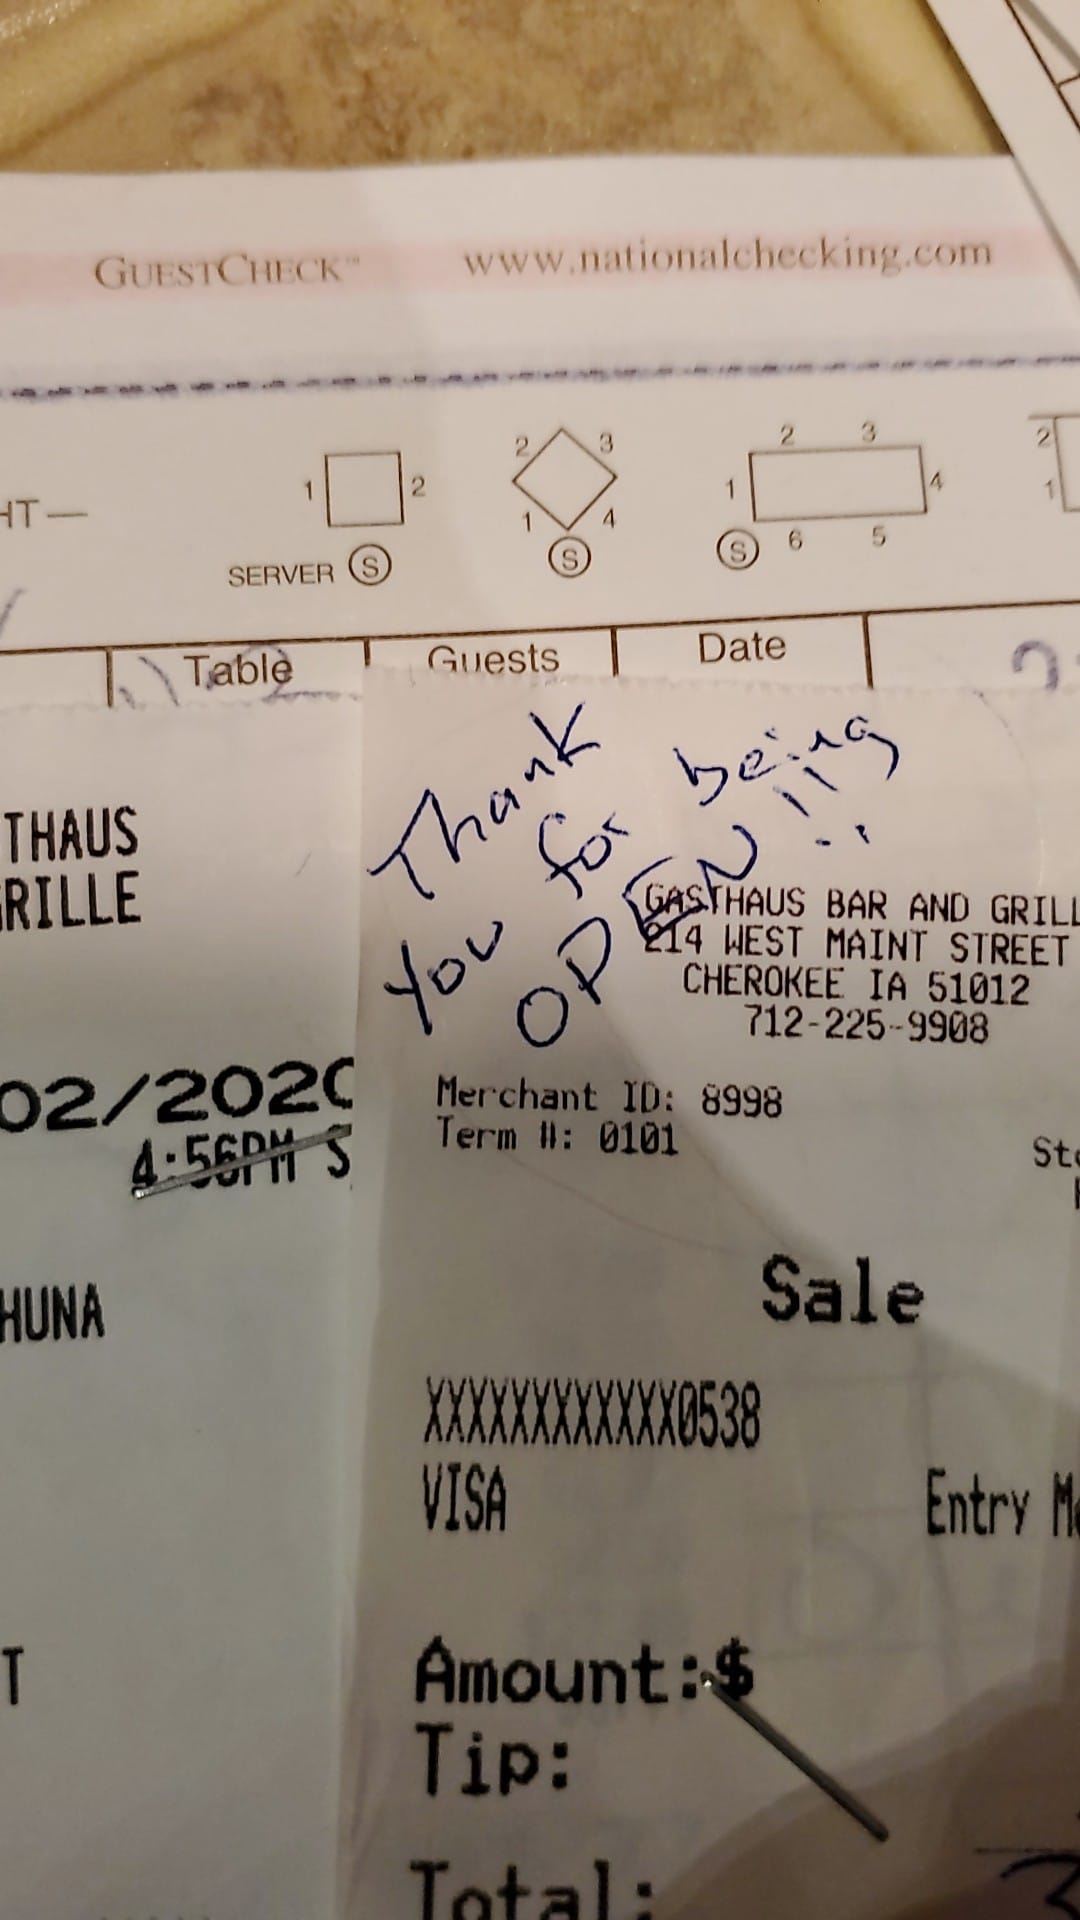 GUESTCHECK™ www.nationalchecking.com
2 3 2 3 2
1 2 1 4 1 4 1
S 6 5
SERVER S S
Table Guests Date
Thank
you for being
OPEN!!
THAUS
RILLE
GASTHAUS BAR AND GRILL
214 WEST MAINT STREET
CHEROKEE IA 51012
712-225-9908
02/2020
4:56PM S
Merchant ID: 8998
Term #: 0101
Sale
HUNA
XXXXXXXXXXXX0538
VISA Entry
T
Amount:$
Tip:
Total: